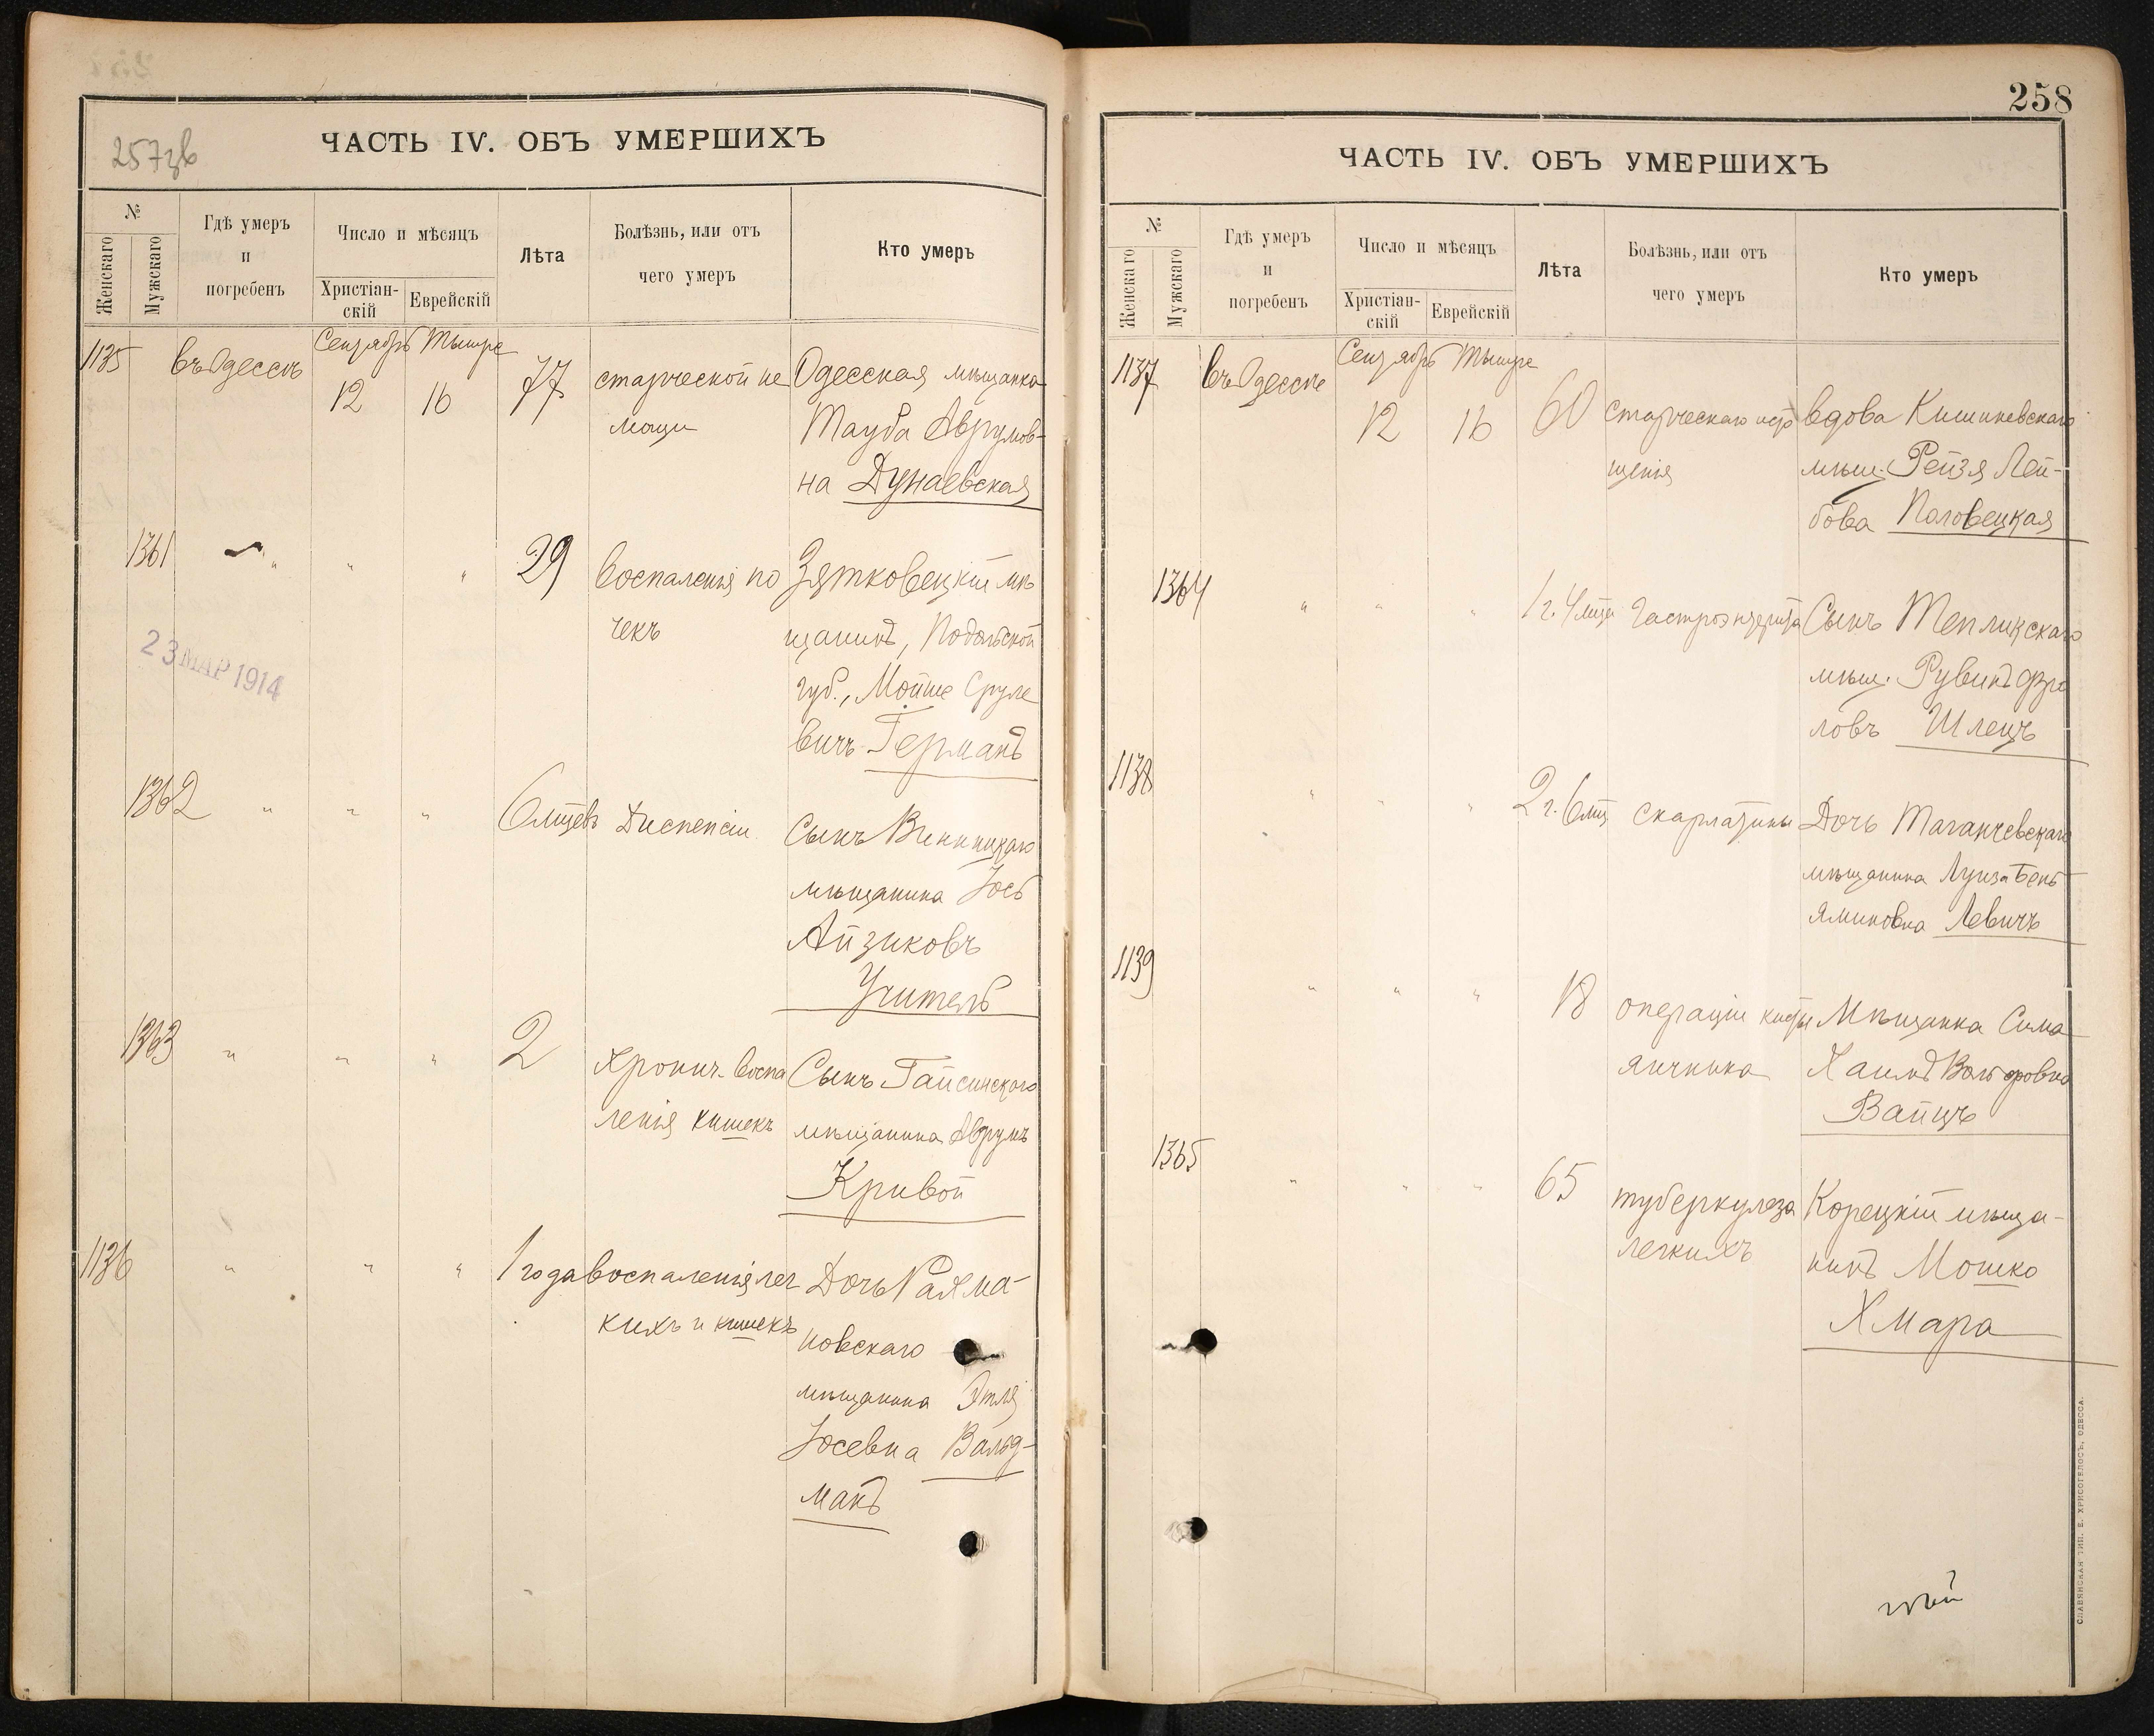 257зв
ЧАСТЬ IV. ОБЪ УМЕРШИХЪ
№
Женскаго
Мужскаго
Гдѣ умеръ
и
погребенъ
Число и мѣсяцъ
Христіан-
скій
Еврейскій
Лѣта
Болѣзнь, или отъ
чего умеръ
Кто умеръ
1135 въ Одессѣ Сентябрь Тышре
12 16 77 старческой не Одесская мѣщанка
мощи Тауба Аврумов-
на Дунаевская
1361 " " " 29 воспаленія по Зятковецкій мѣ
чекъ щанинъ, Подольской
губ., Мойше Сруле
вичъ Германъ
23 МАР 1914
1362 " " " 6 мѣцевъ Диспепсіи Сынъ Винницкаго
мѣщанина Іось
Айзиковъ
Учитель
1363 " " " 2 Хронич. воспа Сынъ Гайсинскаго
ленія кишекъ мѣщанина Аврумъ
Кривой
1136 " " " 1 года воспаленія лег Дочь Рахма-
кихъ и кишекъ новскаго
мѣщанина Этля
Іосевна Вальд-
манъ
258
ЧАСТЬ IV. ОБЪ УМЕРШИХЪ
№
Женскаго
Мужскаго
Гдѣ умеръ
и
погребенъ
Число и мѣсяцъ
Христіан-
скій
Еврейскій
Лѣта
Болѣзнь, или отъ
чего умеръ
Кто умеръ
1137 въ Одессѣ Сентябрь Тышре
12 16 60 Старческаго исто вдова Кишиневскаго
щенія мѣщ. Рейзя Лей-
бова Половецкая
1364 " " " 1 г. 4 мѣца Гастроэнтерита Сынъ Теплицскаго
мѣщ. Рувинъ Фро
ловъ Шленъ
1138 " " " 2 г. 6 мѣц скарлатины Дочь Таганчевскаго
мѣщанина Луиза Бень
яминовна Левичъ
1139 " " " 18 операціи кисты Мѣщанка Сима
яичника Хаимъ
Вайцъ
1365 " " " 65 туберкулеза Корецкій мѣща-
легкихъ нинъ Мошко
Хмара
СЛАВЯНСКАЯ ТИП. Е. ХРИСОГЕЛОСЪ, ОДЕССА.